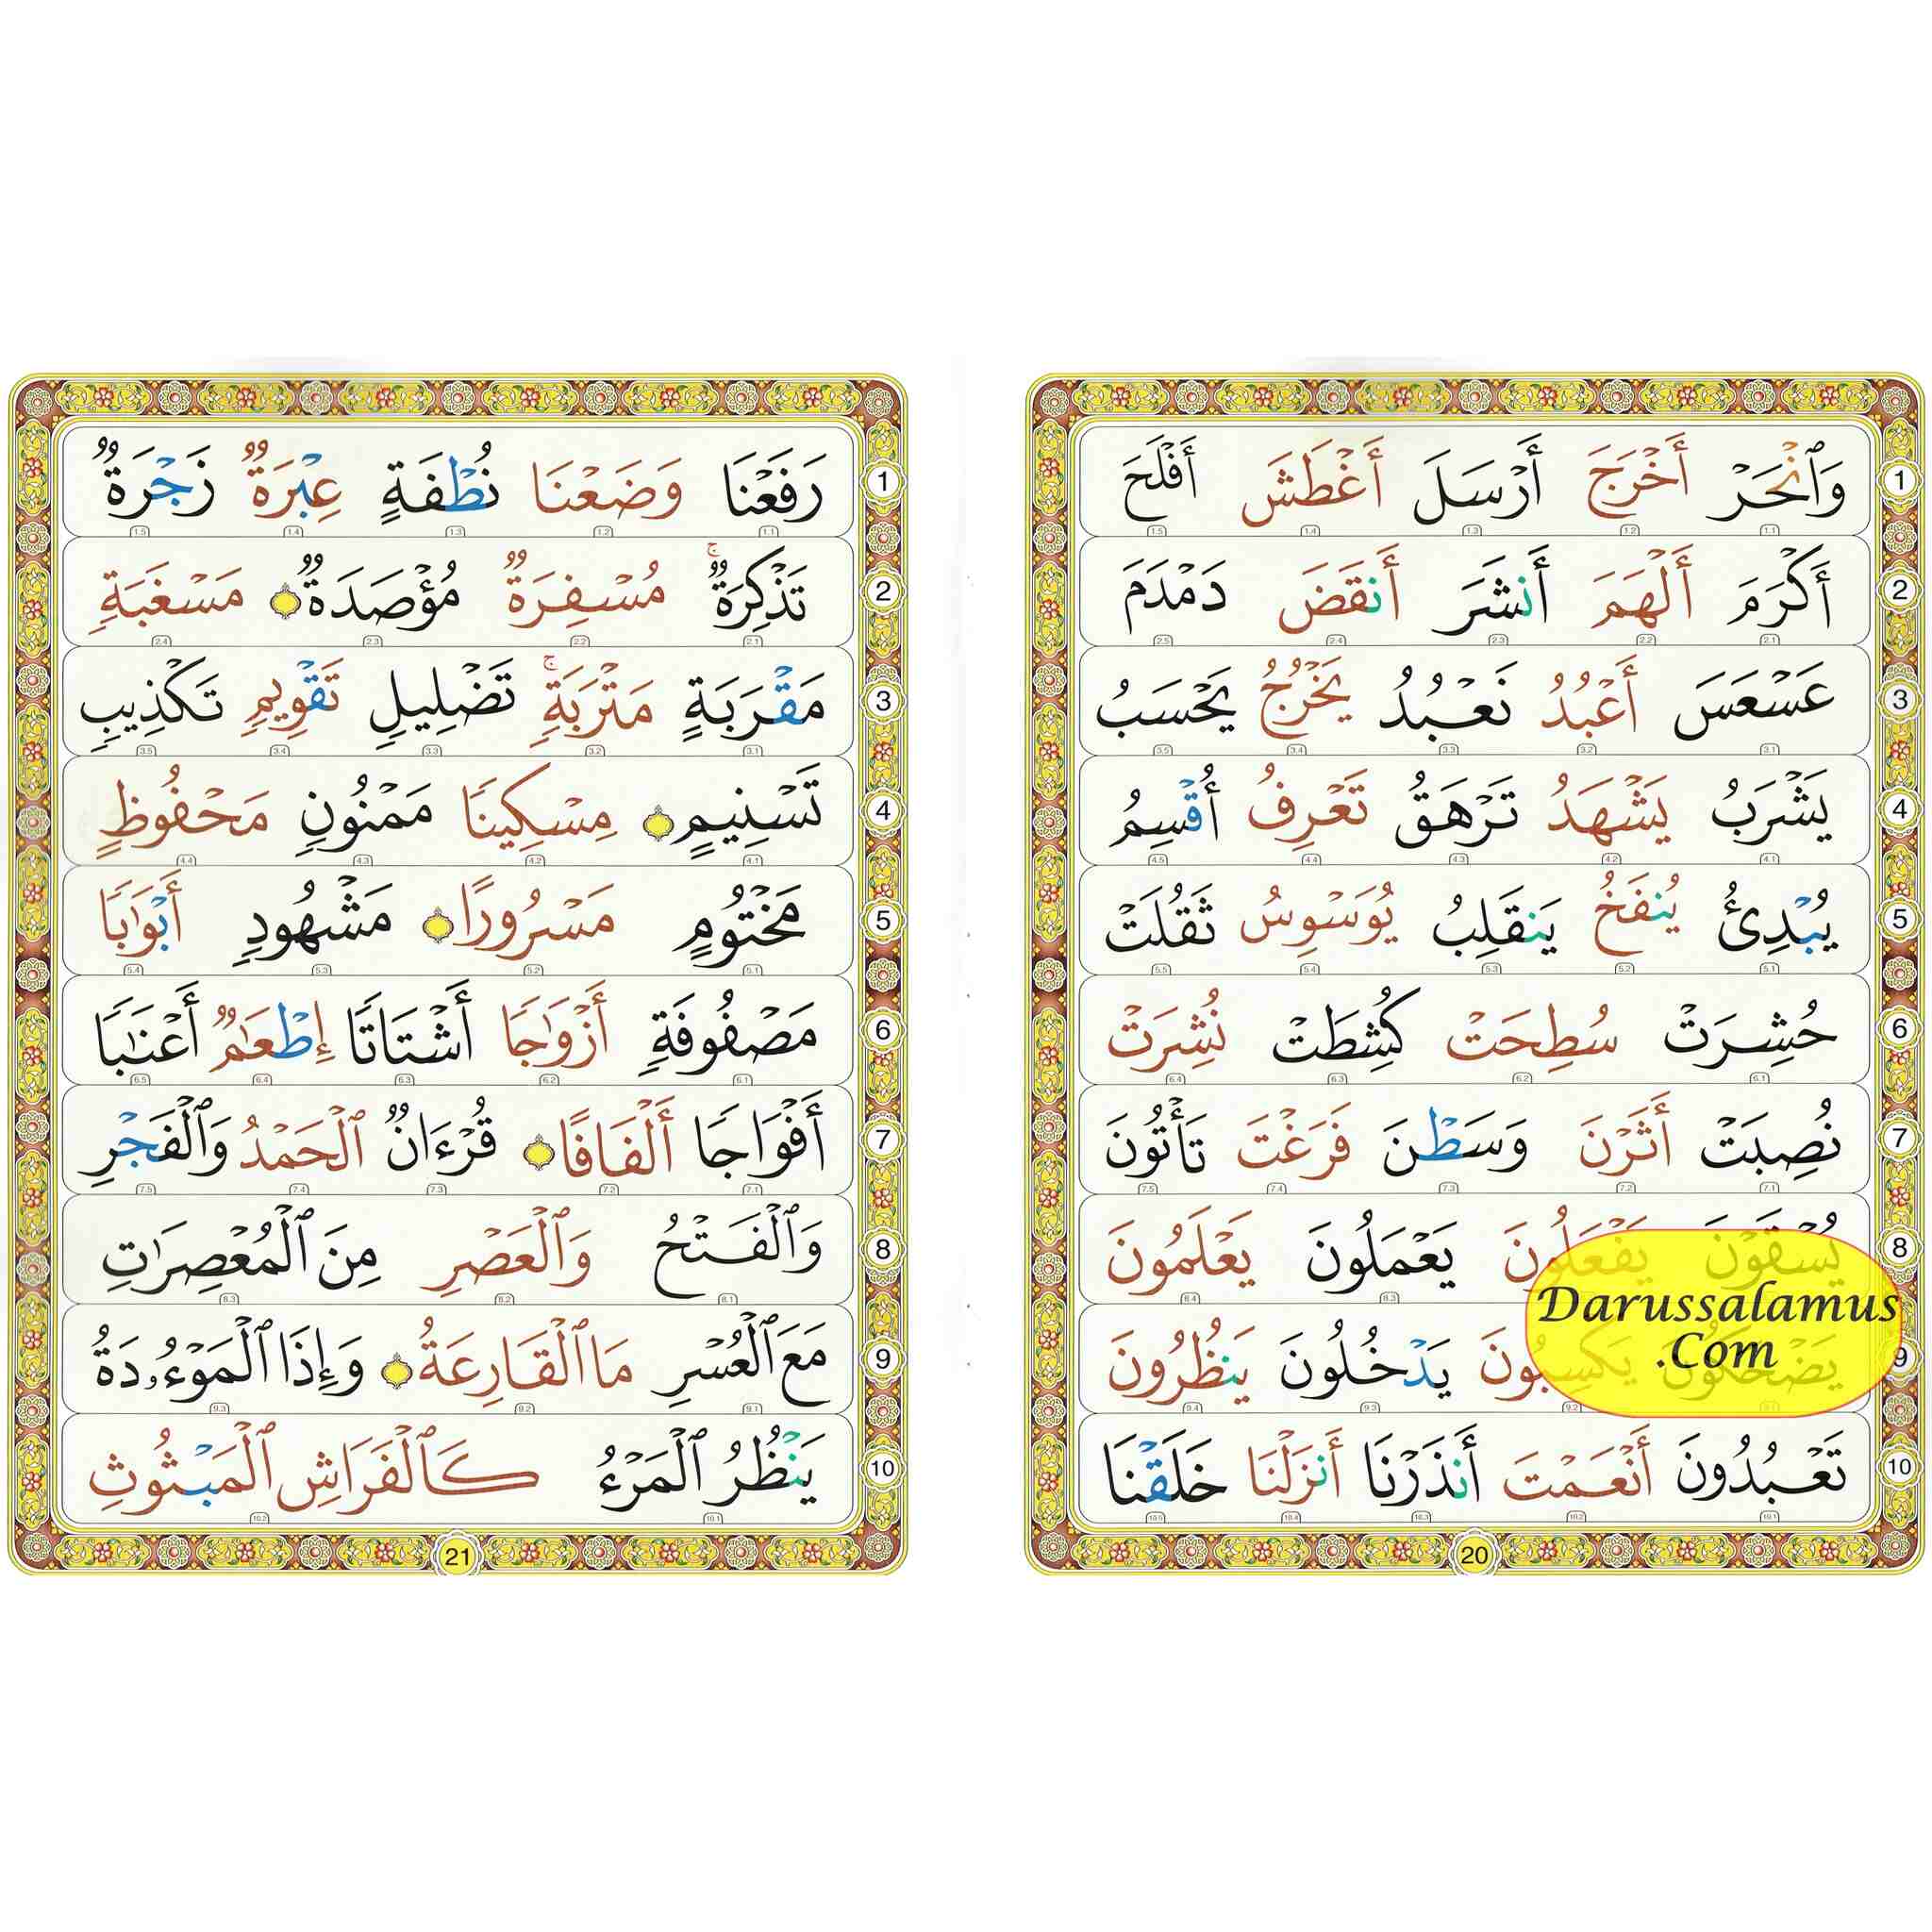 1 وَٱنْحَرْ أَخْرَجَ أَرْسَلَ أَغْطَشَ أَفْلَحَ
1.1 1.2 1.3 1.4 1.5
2 أَكْرَمَ أَلْهَمَ أَنشَرَ أَنقَضَ دَمْدَمَ
2.1 2.2 2.3 2.4 2.5
3 عَسْعَسَ أَعْبُدُ نَعْبُدُ يَخْرُجُ يَحْسَبُ
3.1 3.2 3.3 3.4 3.5
4 يَشْرَبُ يَشْهَدُ تَرْهَقُ تَعْرِفُ أُقْسِمُ
4.1 4.2 4.3 4.4 4.5
5 يُبْدِئُ يُنفَخُ يَنقَلِبُ يُوَسْوِسُ ثَقُلَتْ
5.1 5.2 5.3 5.4 5.5
6 حُشِرَتْ سُطِحَتْ كُشِطَتْ نُشِرَتْ
6.1 6.2 6.3 6.4
7 نُصِبَتْ أَثَرْنَ وَسَطْنَ فَرَغْتَ تَأْتُونَ
7.1 7.2 7.3 7.4 7.5
8 يُسْقَوْنَ يَفْعَلُونَ يَعْمَلُونَ يَعْلَمُونَ
8.3 8.4
Darussalamus
.Com
9 يَضْحَكُونَ يَكْسِبُونَ يَدْخُلُونَ يَنظُرُونَ
9.1 9.2 9.3 9.4
10 تَعْبُدُونَ أَنْعَمْتَ أَنذَرْنَا أَنزَلْنَا خَلَقْنَا
10.1 10.2 10.3 10.4 10.5
20
1 رَفَعْنَا وَضَعْنَا نُطْفَةٍ عِبْرَةٌ زَجْرَةٌ
1.1 1.2 1.3 1.4 1.5
2 تَذْكِرَةٌۚ مُسْفِرَةٌ مُؤْصَدَةٌ مَسْغَبَةٍ
2.1 2.2 2.3 2.4
3 مَقْرَبَةٍ مَتْرَبَةٍۚ تَضْلِيلٍ تَقْوِيمٍ تَكْذِيبٍ
3.1 3.2 3.3 3.4 3.5
4 تَسْنِيمٍ مِسْكِينًا مَمْنُونٍ مَحْفُوظٍ
4.1 4.2 4.3 4.4
5 مَخْتُومٍ مَسْرُورًا مَشْهُودٍ أَبْوَٰبًا
5.1 5.2 5.3 5.4
6 مَصْفُوفَةٍ أَزْوَٰجًا أَشْتَاتًا إِطْعَٰمٌ أَعْنَٰبًا
6.1 6.2 6.3 6.4 6.5
7 أَفْوَاجًا أَلْفَافًا قُرْءَانٌ ٱلْحَمْدُ وَٱلْفَجْرِ
7.1 7.2 7.3 7.4 7.5
8 وَٱلْفَتْحُ وَٱلْعَصْرِ مِنَ ٱلْمُعْصِرَٰتِ
8.1 8.2 8.3
9 مَعَ ٱلْعُسْرِ مَا ٱلْقَارِعَةُ وَإِذَا ٱلْمَوْءُۥدَةُ
9.1 9.2 9.3
10 يَنْظُرُ ٱلْمَرْءُ كَٱلْفَرَاشِ ٱلْمَبْثُوثِ
10.1 10.2
21